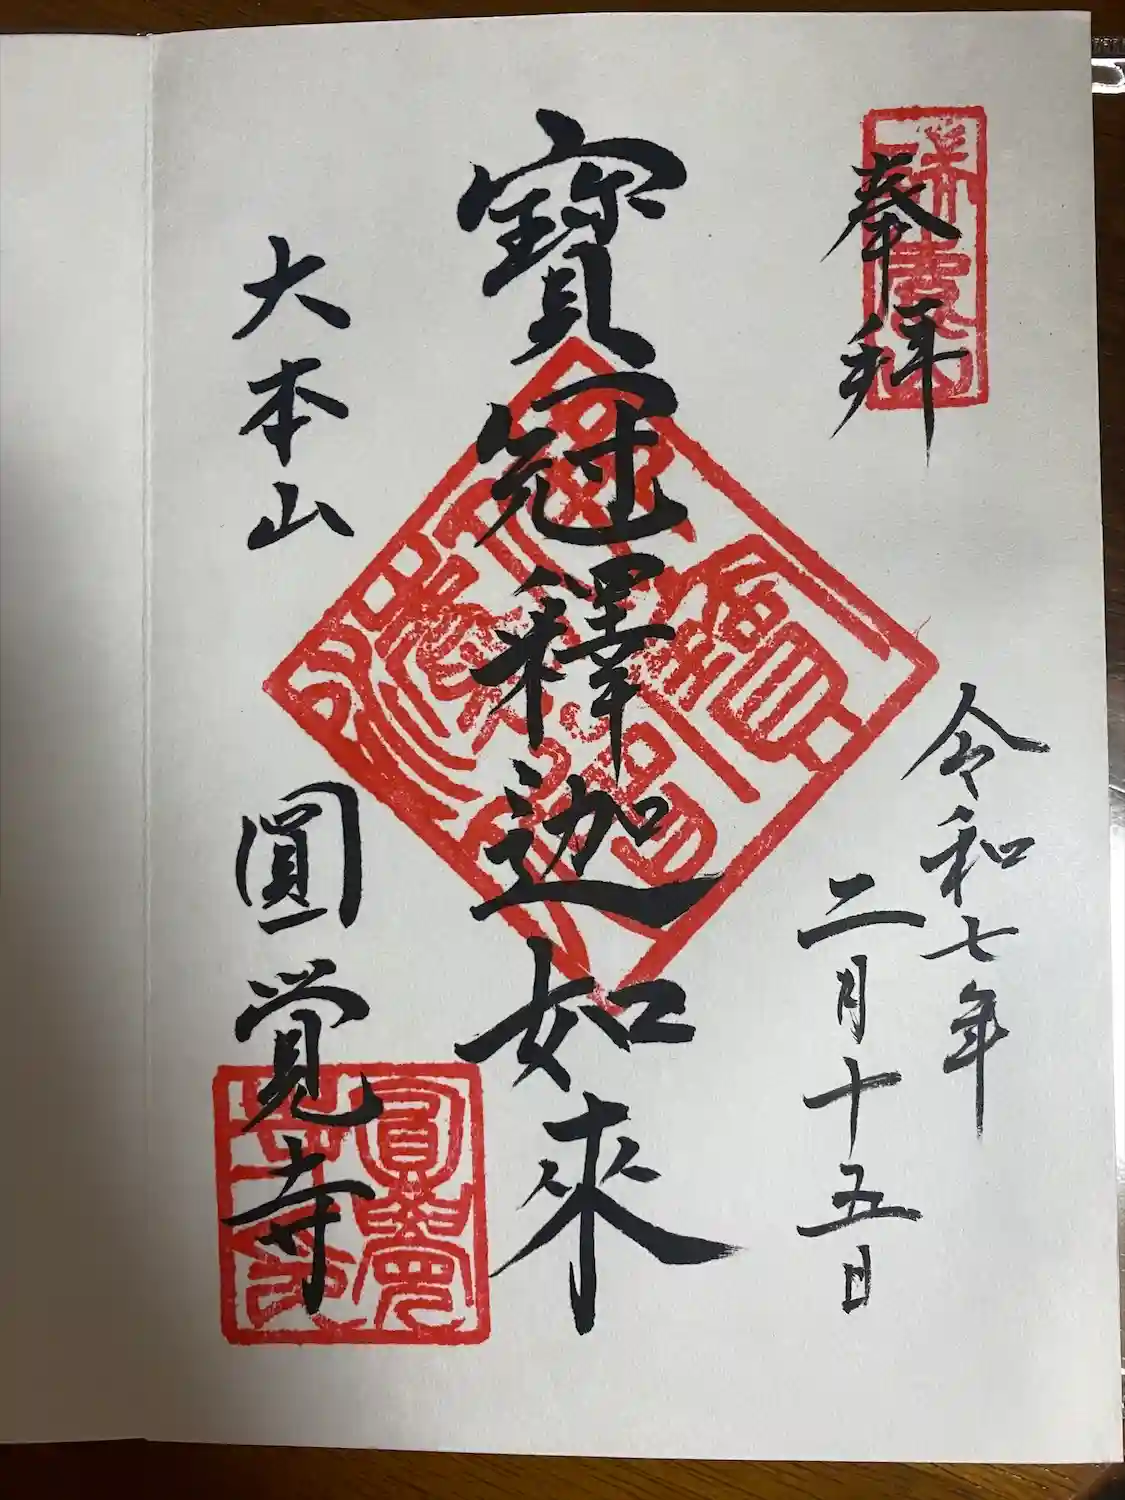 奉拝
令和七年
二月十五日
寶冠釋迦如來
大本山
圓覺寺